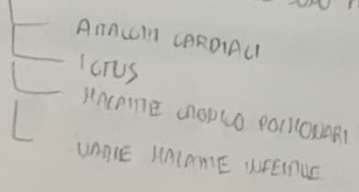 ATTACCHI CARDIACI
ICTUS
MALATTIE CRONICO POLMONARI
VARIE MALATTIE INFETTIVE